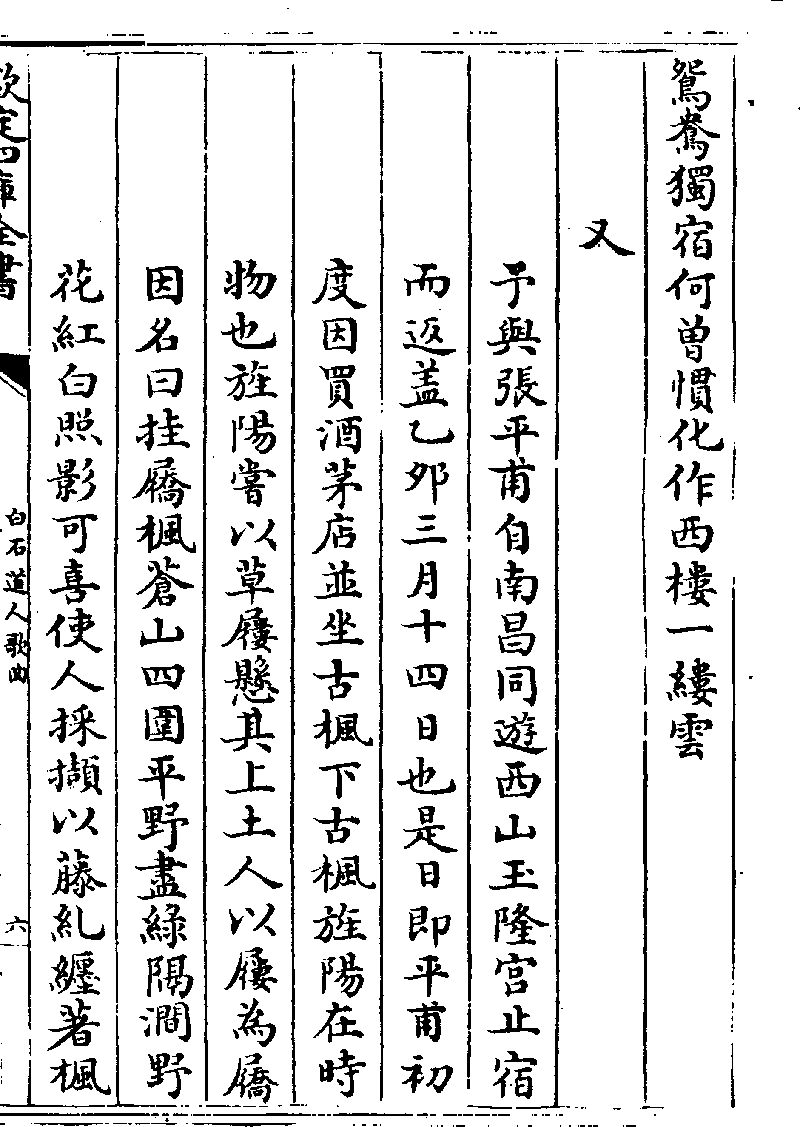 鴛鴦獨宿何曽慣化作西樓一縷雲
又
予與張平甫自南昌同遊西山玉隆宫止宿
而返盖乙夘三月十四日也是日即平甫初
度因買酒茅店並坐古楓下古楓旌陽在時
物也旌陽嘗以草屨懸其上土人以屨為屩
因名曰挂屩楓蒼山四圍平野盡緑隔澗野
花紅白照影可喜使人採擷以藤糺纒著楓
欽定四庫全書
白石道人歌曲
六